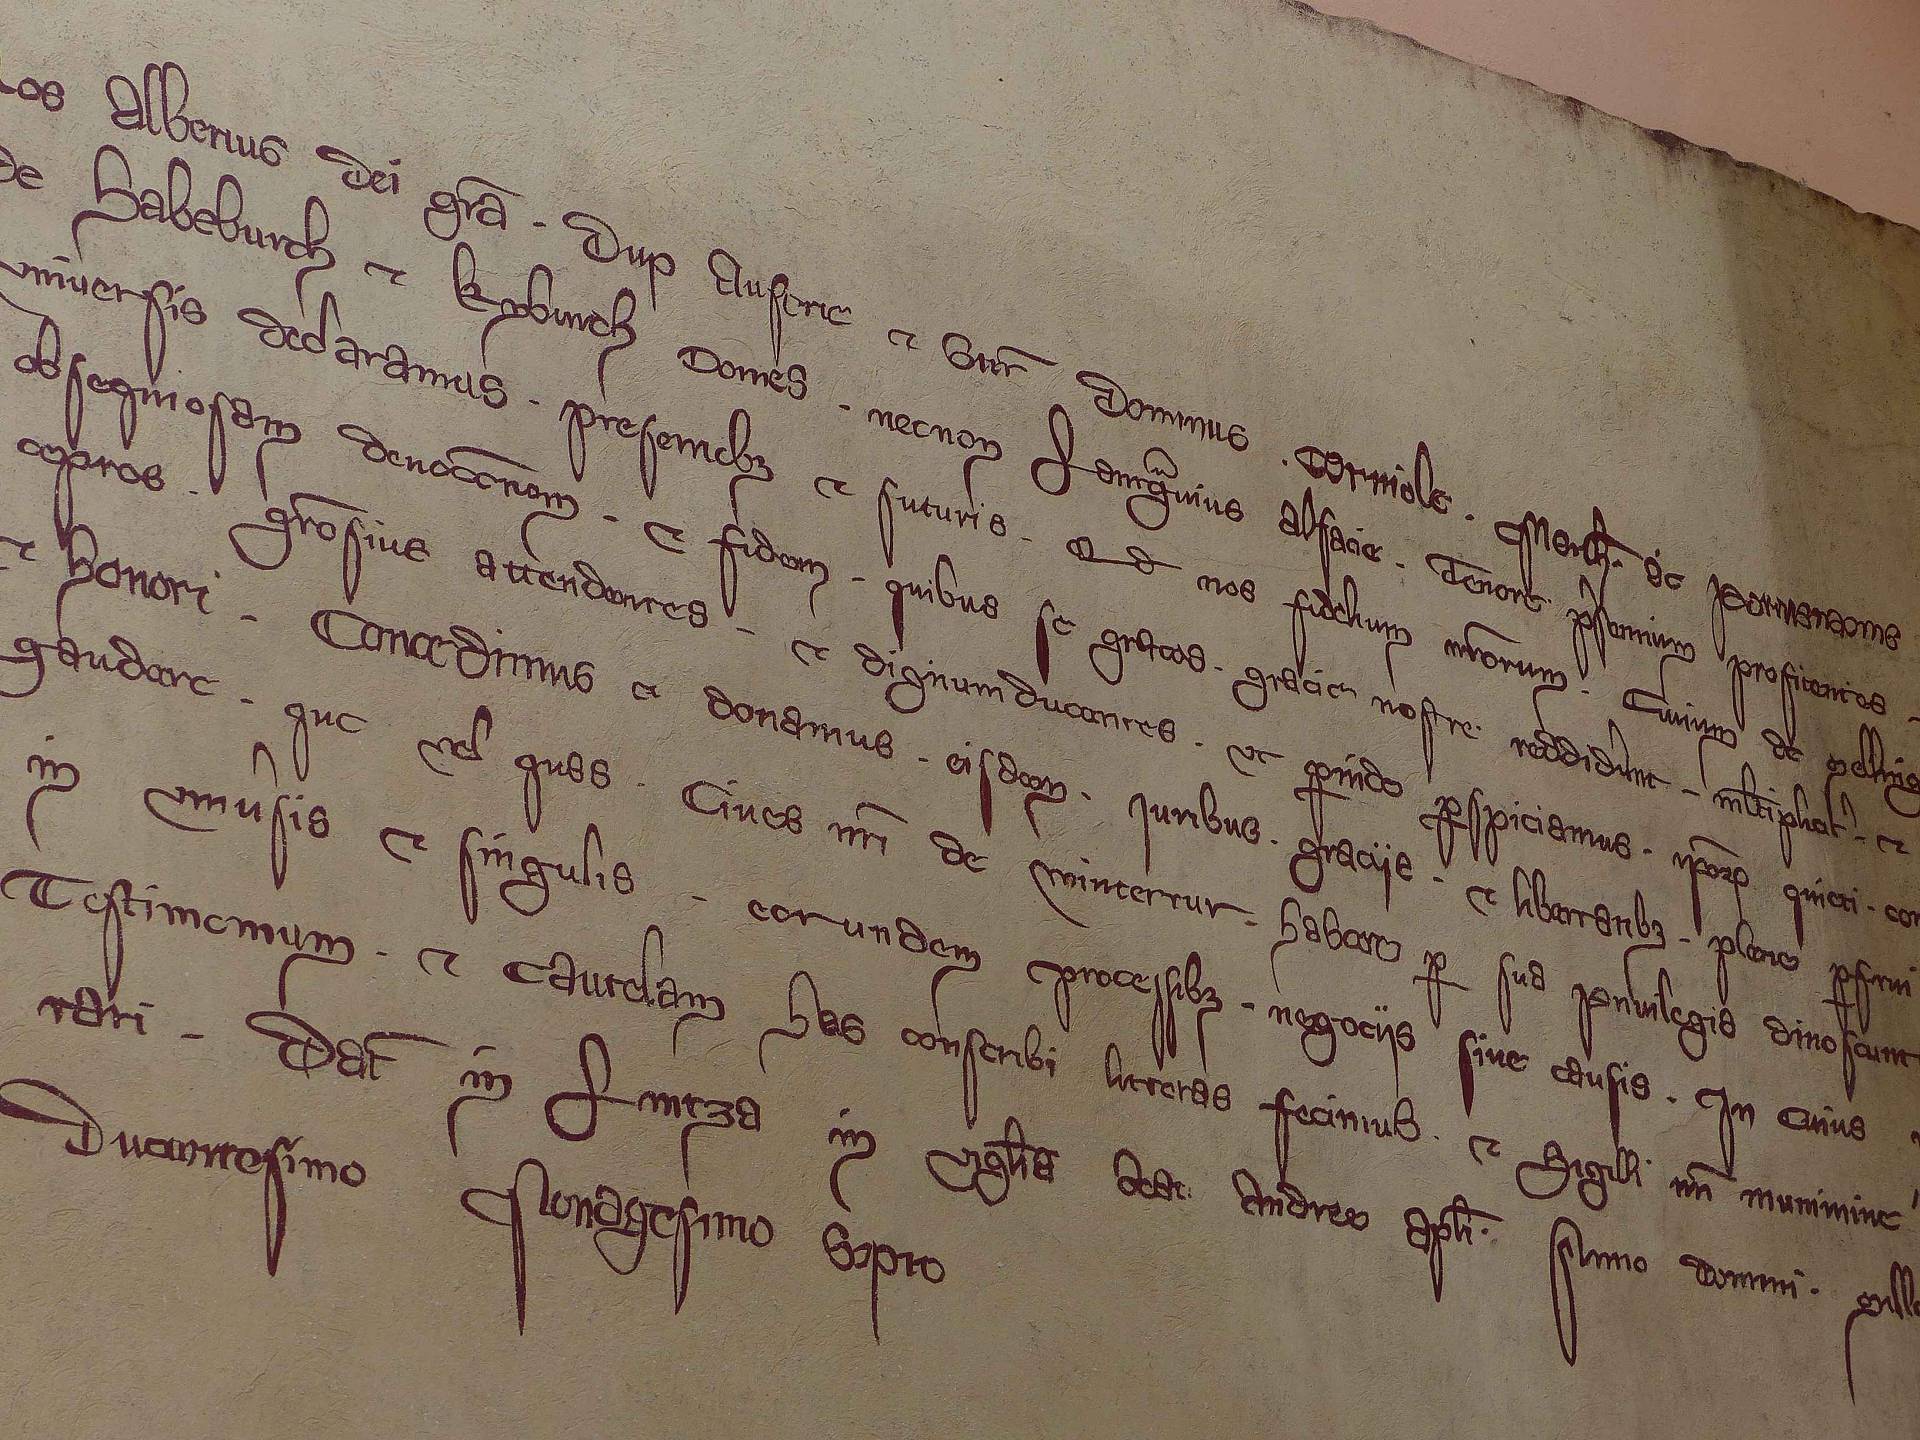 os Albertus Dei grā · Dux Austrie et Stir Dominus · Carniole · March̄ · ac
de Habsburch et kyburch Comes · necnon Lantgͣuius Alsacie · Tenore pͥsencium profitentes
vniuersis declaramus · presentibꝫ et futuris · Qd nos fidelium nrōrum · Ciuium de
obsequiosam deuocōnem · et fidem · quibus se gratos · gracie nostre reddidunt · mltiplicat · et
ceptos · grōsius attendentes · et dignum ducentes · et ꝑinde ꝑspiciamus · ipōrꝫ quieti · con
et honori · Concedimus et donamus · eisdem · Iuribus · gracijs · et libertatibꝫ · plene ꝑfrui
gaudere · que vel quas · Ciues nrī de winterrur · habere ꝑ sua priuilegia dinoscunt
in vniūsis et singulis · eorundem processibꝫ · negocijs siue causis · In Cuius
Testimonium · et cautelam has conscribi litteras fecimus · et Sigilli nrī munimine
rari · Dat̄ in Lintza in vigl̄ia beati Andree apl̄i · Anno domini · Mille
Ducentesimo Nonagesimo Septo